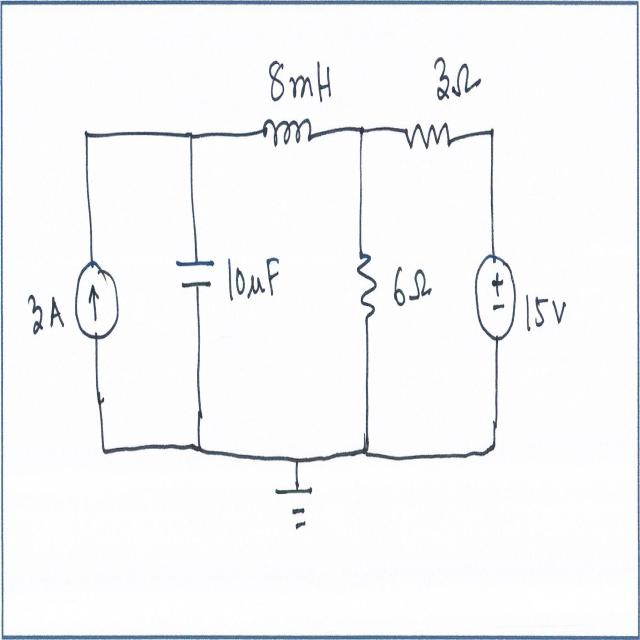 8mH
3Ω
3A
10µF
6Ω
+
−
15V